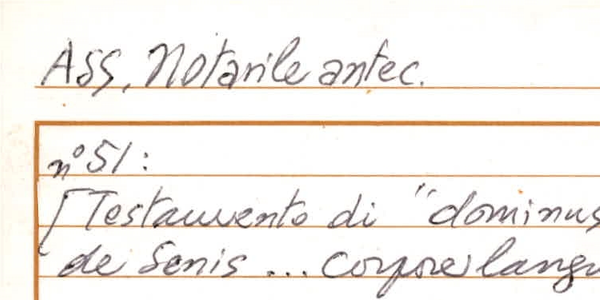 Ass, Notarile antec.
n° 51:
[Testamento di "dominus
de Senis ... corpore langu